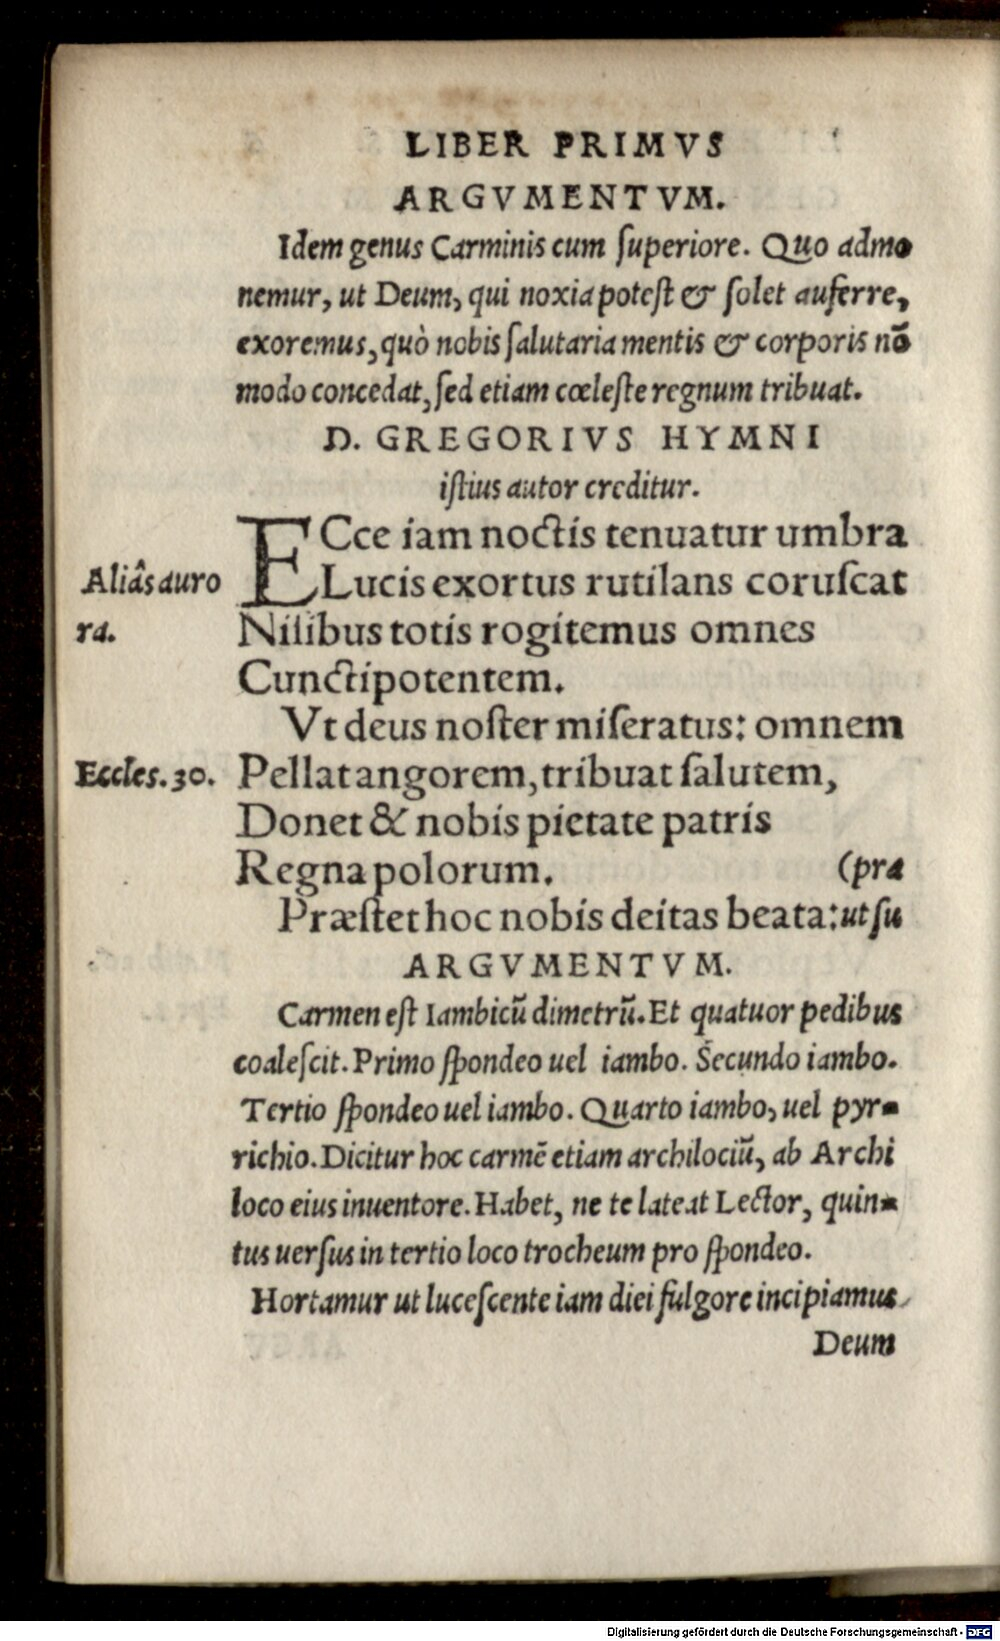 LIBER PRIMVS
ARGVMENTVM.
Idem genus Carminis cum ſuperiore. Quo admo
nemur, ut Deum, qui noxia poteſt & ſolet auferre,
exoremus, quò nobis ſalutaria mentis & corporis nō
modo concedat, ſed etiam cœleſte regnum tribuat.
D. GREGORIVS HYMNI
iſtius autor creditur.
ECce iam noctis tenuatur umbra
Aliâs auro
Lucis exortus rutilans coruſcat
ra.
Niſibus totis rogitemus omnes
Cunctipotentem.
Vt deus noſter miſeratus: omnem
Eccles. 30.
Pellat angorem, tribuat ſalutem,
Donet & nobis pietate patris
Regna polorum. (pra
Præſtet hoc nobis deitas beata: ut ſu
ARGVMENTVM.
Carmen eſt Iambicū dimetrū. Et quatuor pedibus
coaleſcit. Primo ſpondeo uel iambo. Secundo iambo.
Tertio ſpondeo uel iambo. Quarto iambo, uel pyr-
richio. Dicitur hoc carmē etiam archilociū, ab Archi
loco eius inuentore. Habet, ne te lateat Lector, quin-
tus uerſus in tertio loco trocheum pro ſpondeo.
Hortamur ut luceſcente iam diei fulgore incipiamus
Deum
Digitalisierung gefördert durch die Deutsche Forschungsgemeinschaft - DFG